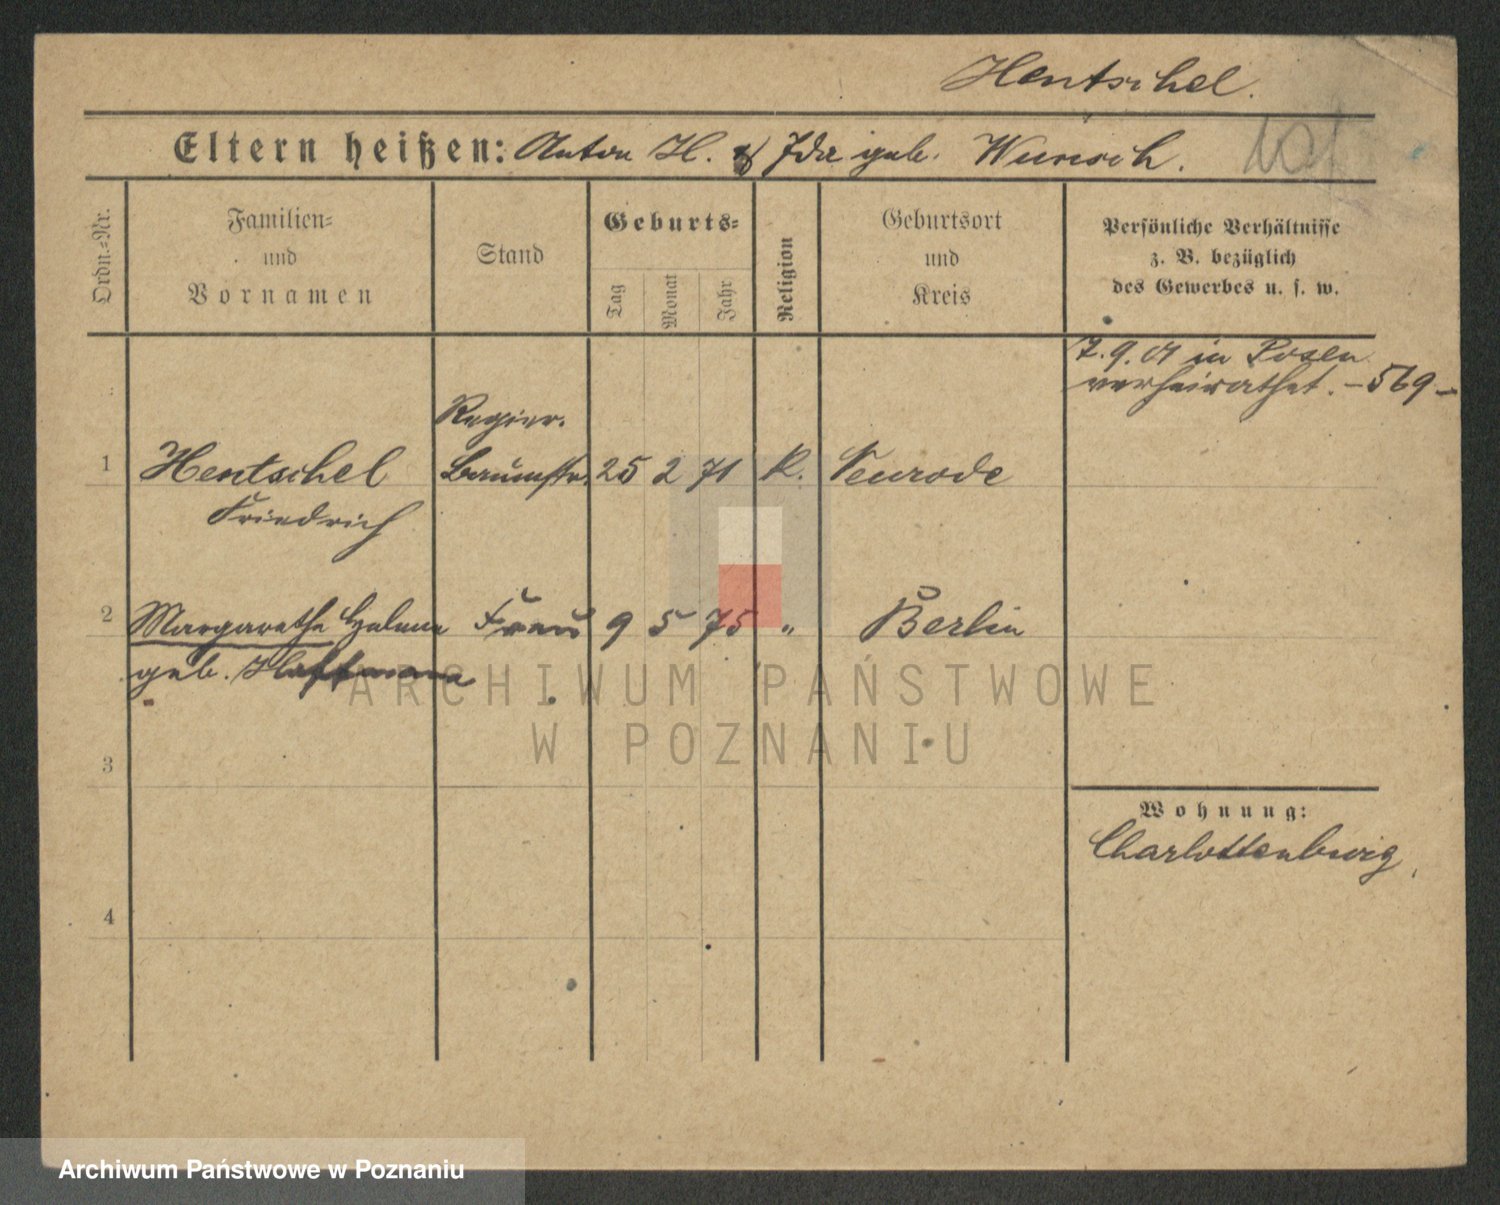 Hentschel.
Eltern heißen: Anton H. & Ida geb. Wunsch.
Ordn.=Nr.
Familien=
und
Vornamen
Stand
Geburts=
Tag
Monat
Jahr
Religion
Geburtsort
und
Kreis
Persönliche Verhältnisse
z. B. bezüglich
des Gewerbes u. s. w.
7. 9. 01 in Posen
verheirathet. – 569 –
Regier.
1 Hentschel Baumstr. 25 2 71 K. Neurode
Friedrich
2 Margarethe Helene Frau 9 5 75 " Berlin
geb.
3
Wohnung:
Charlottenburg,
4
ARCHIWUM PAŃSTWOWE
W POZNANIU
Archiwum Państwowe w Poznaniu